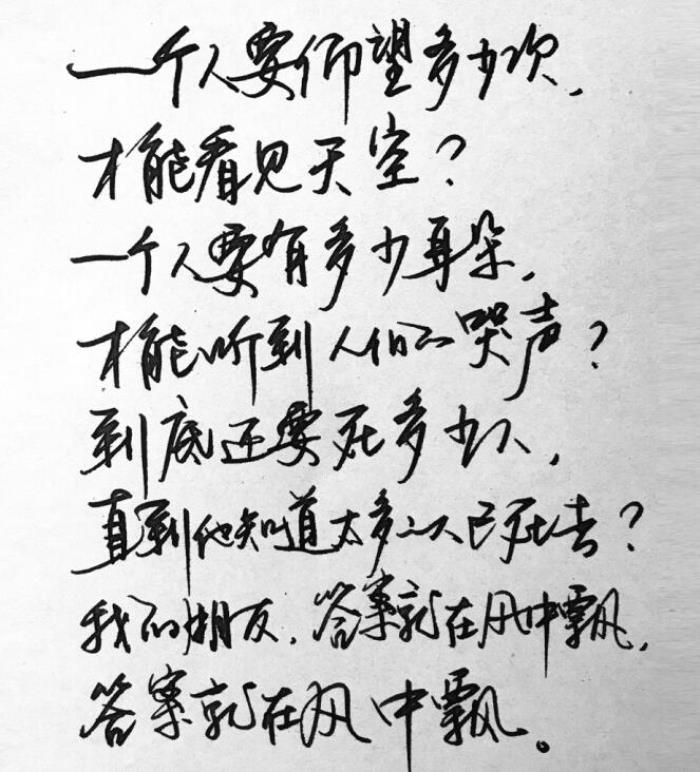 一个人要仰望多少次，
才能看见天空？
一个人要有多少耳朵，
才能听到人们的哭声？
到底还要死多少人，
直到他知道太多人已死去？
我的朋友，答案就在风中飘，
答案就在风中飘。